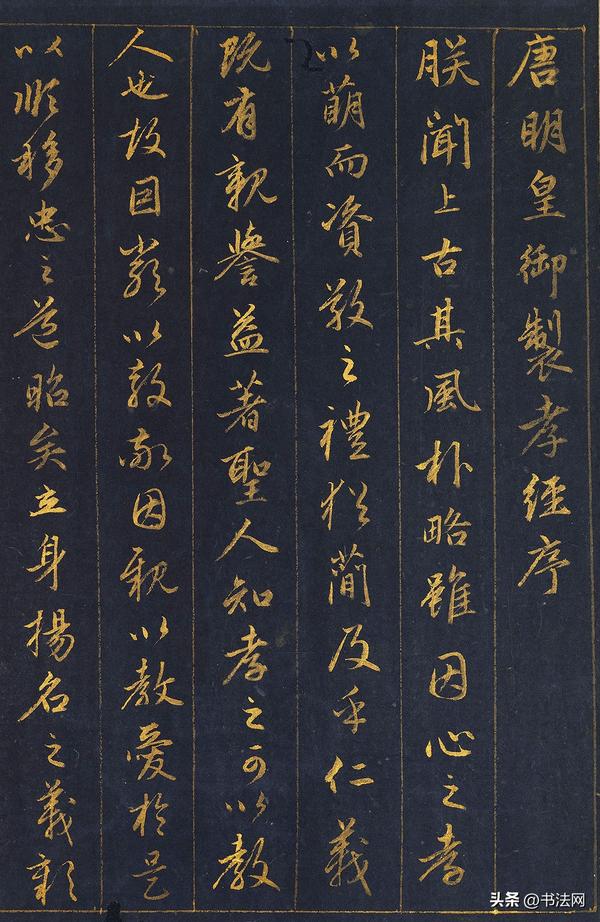 唐明皇御製孝經序
朕聞上古其風朴略雖因心之孝
以萌而資敬之禮猶簡及乎仁義
既有親譽益著聖人知孝之可以教
人也故因嚴以教敬因親以教愛於是
以順移忠之道昭矣立身揚名之義彰
头条 @书法网